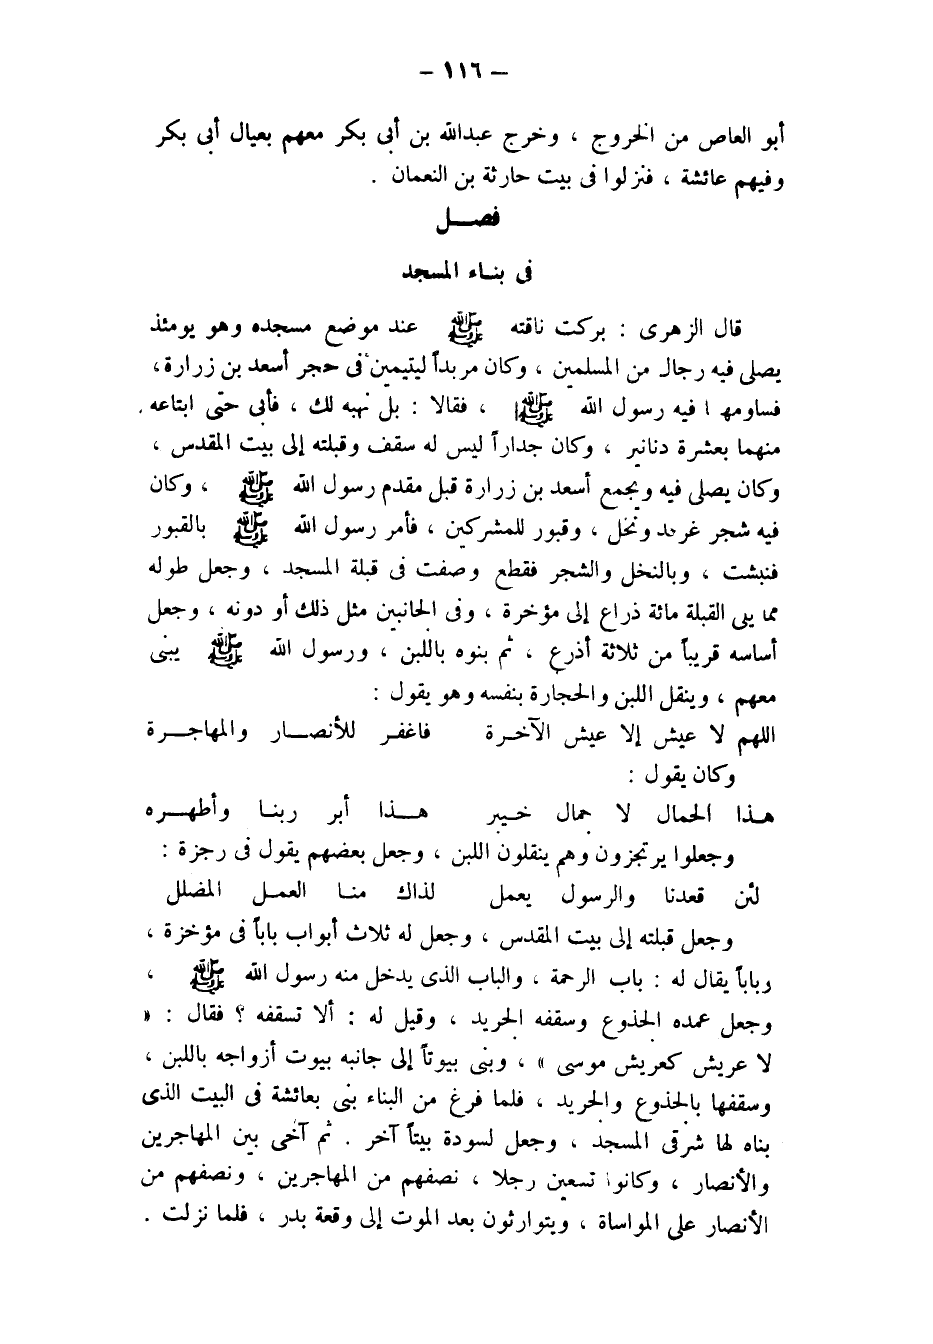 – ١١٦ –
أبو العاص من الخروج ، وخرج عبدالله بن أبى بكر معهم بعيال أبى بكر
وفيهم عائشة ، فنزلوا فى بيت حارثة بن النعمان .
فصــل
فى بناء المسجد
قال الزهرى : بركت ناقته ﷺ عند موضع مسجده وهو يومئذ
يصلى فيه رجال من المسلمين ، وكان مربداً ليتيمين فى حجر أسعد بن زرارة،
فساومهما فيه رسول الله ﷺ ، فقالا : بل نهبه لك ، فأبى حتى ابتاعه
منهما بعشرة دنانير ، وكان جداراً ليس له سقف وقبلته إلى بيت المقدس ،
وكان يصلى فيه ويجمع أسعد بن زرارة قبل مقدم رسول الله ﷺ ، وكان
فيه شجر غرقد ونخل ، وقبور للمشركين ، فأمر رسول الله ﷺ بالقبور
فنبشت ، وبالنخل والشجر فقطع وصفت فى قبلة المسجد ، وجعل طوله
مما يلى القبلة مائة ذراع إلى مؤخرة ، وفى الجانبين مثل ذلك أو دونه ، وجعل
أساسه قريباً من ثلاثة أذرع ، ثم بنوه باللبن ، ورسول الله ﷺ يبنى
معهم ، وينقل اللبن والحجارة بنفسه وهو يقول :
اللهم لا عيش إلا عيش الآخرة فاغفر للأنصــار والمهاجــرة
وكان يقول :
هـذا الحمال لا حمال خـيبر هــذا أبر ربنـا وأطهــره
وجعلوا يرتجزون وهم ينقلون اللبن ، وجعل بعضهم يقول فى رجزة :
لئن قعدنا والرسول يعمل لذاك منـا العمـل المضلل
وجعل قبلته إلى بيت المقدس ، وجعل له ثلاث أبواب باباً فى مؤخرة ،
وباباً يقال له : باب الرحمة ، والباب الذى يدخل منه رسول الله ﷺ ،
وجعل عمده الجذوع وسقفه الجريد ، وقيل له : ألا تسقفه ؟ فقال : «
لا عريش كعريش موسى » ، وبنى بيوتاً إلى جانبه بيوت أزواجه باللبن ،
وسقفها بالجذوع والجريد ، فلما فرغ من البناء بنى بعائشة فى البيت الذى
بناه لها شرقى المسجد ، وجعل لسودة بيتاً آخر . ثم آخى بين المهاجرين
والأنصار ، وكانوا تسعين رجلا ، نصفهم من المهاجرين ، ونصفهم من
الأنصار على المواساة ، ويتوارثون بعد الموت إلى وقعة بدر ، فلما نزلت .